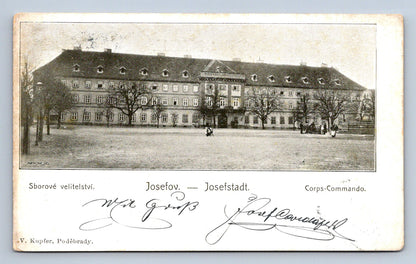 Sborové velitelství. Josefov. — Josefstadt. Corps-Commando.
Mit Gruß
V. Kupfer, Poděbrady.